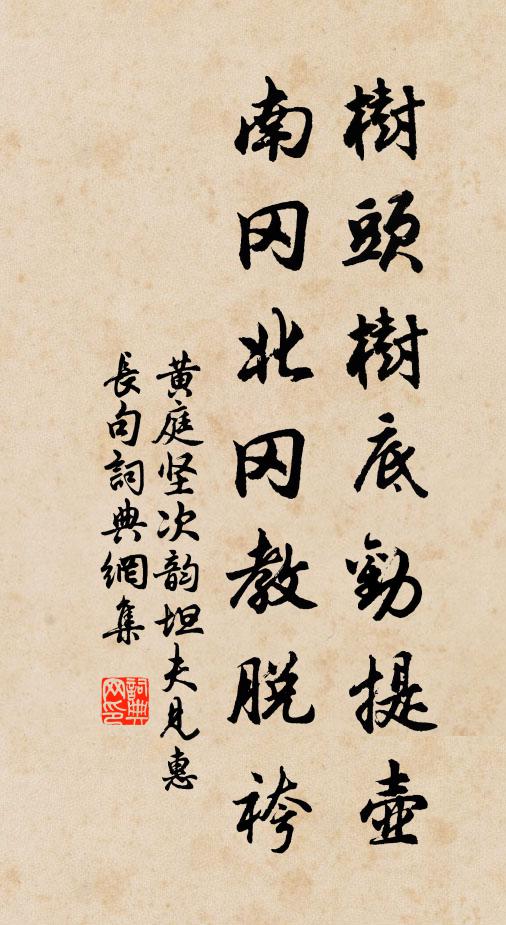 樹頭樹底勸提壺
南冈北冈教脫袴
黃庭坚次韵坦夫見惠
長句詞典網集
詞典网印